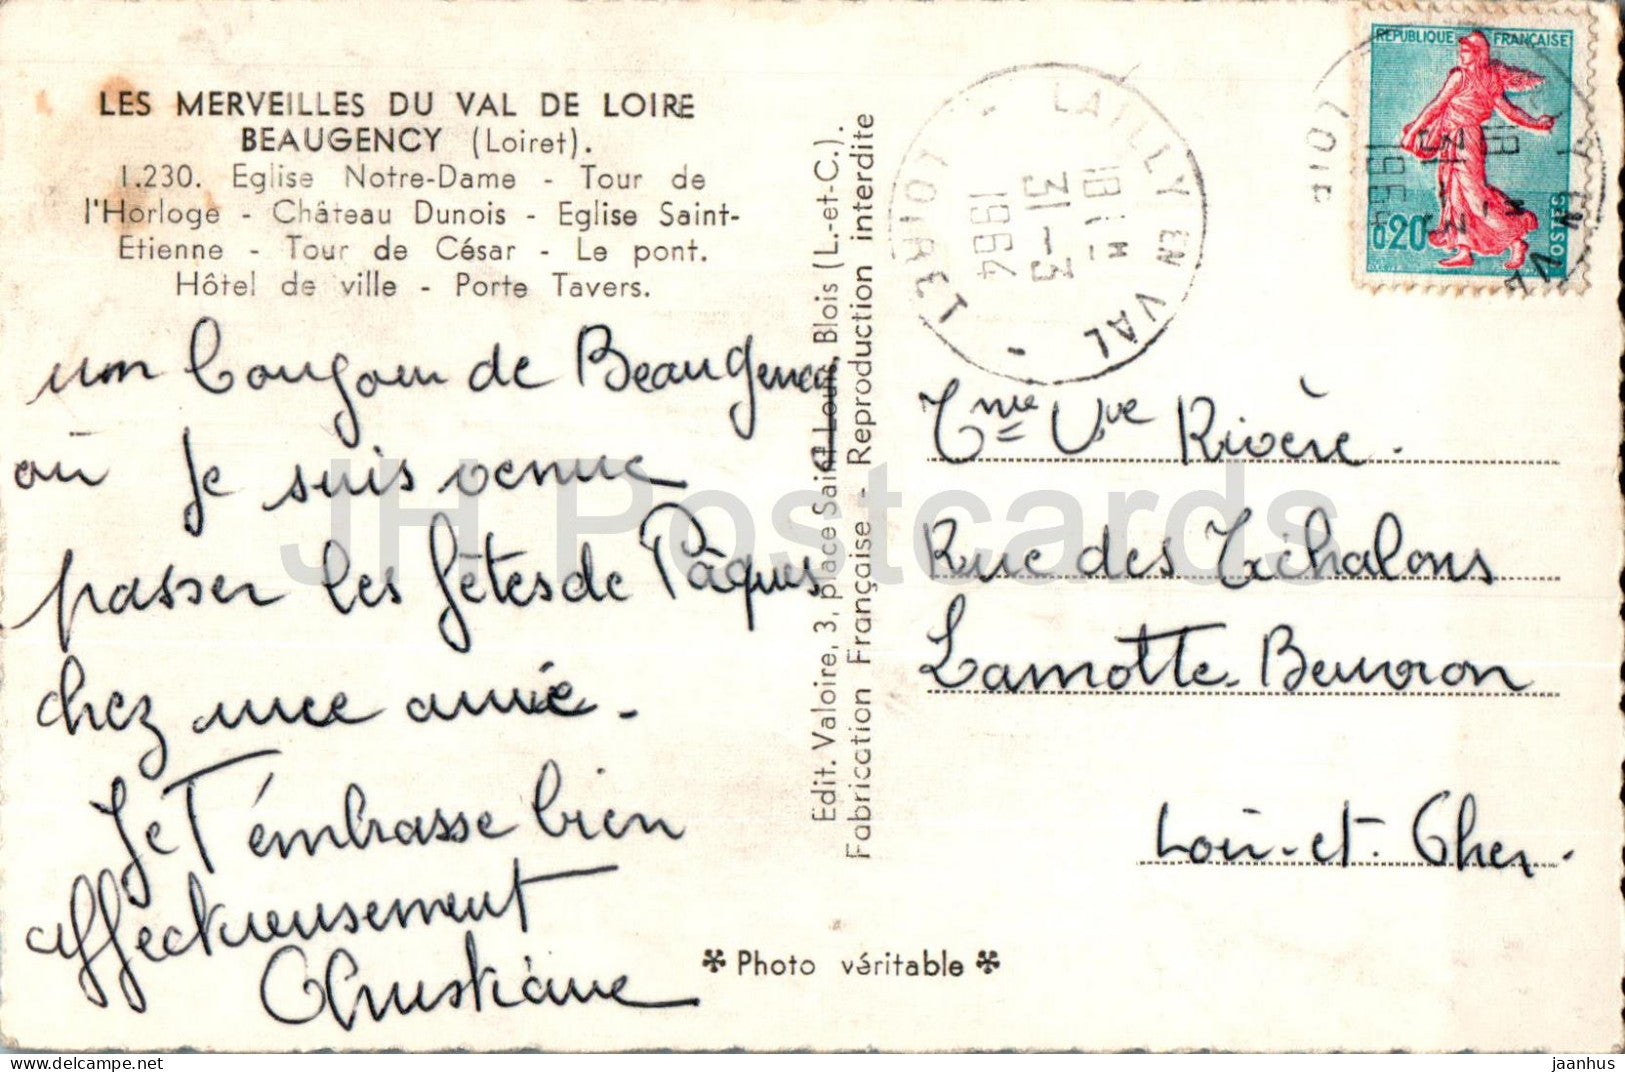 LES MERVEILLES DU VAL DE LOIRE
BEAUGENCY (Loiret).
1.230. Eglise Notre-Dame - Tour de
l'Horloge - Château Dunois - Eglise Saint-
Etienne - Tour de César - Le pont.
Hôtel de ville - Porte Tavers.
un bonjour de Beaugency
où je suis venue
passer les fêtes de Pâques
chez une amie.
Je T'embrasse bien
affectueusement
Christiane
Edit. Valoire, 3, place Saint-Louis, Blois (L.-et-C.).
Fabrication Française - Reproduction interdite
Photo véritable
LAILLY EN VAL
LOIRET
18H
31-3
1964
REPUBLIQUE FRANÇAISE
0,20
POSTES
18H
31-3
1964
Mme Vve Rivère.
Rue des
Lamotte-Beuvron
Loir-et-Cher.
JH Postcards
delcampe.net
jaanhus